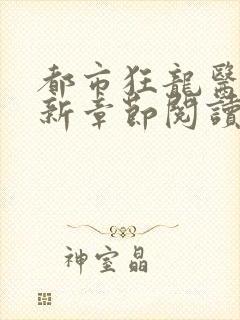 都市狂龍醫
新章節閱讀
神室晶